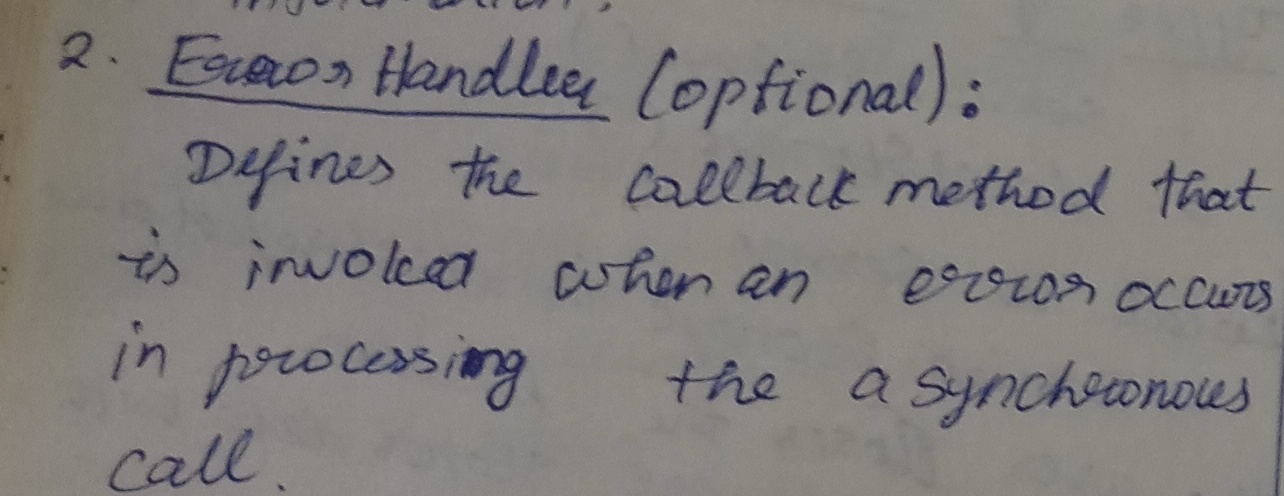 2. Error Handler (optional):
Defines the callback method that
is invoked when an error occurs
in processing the asynchronous
call.